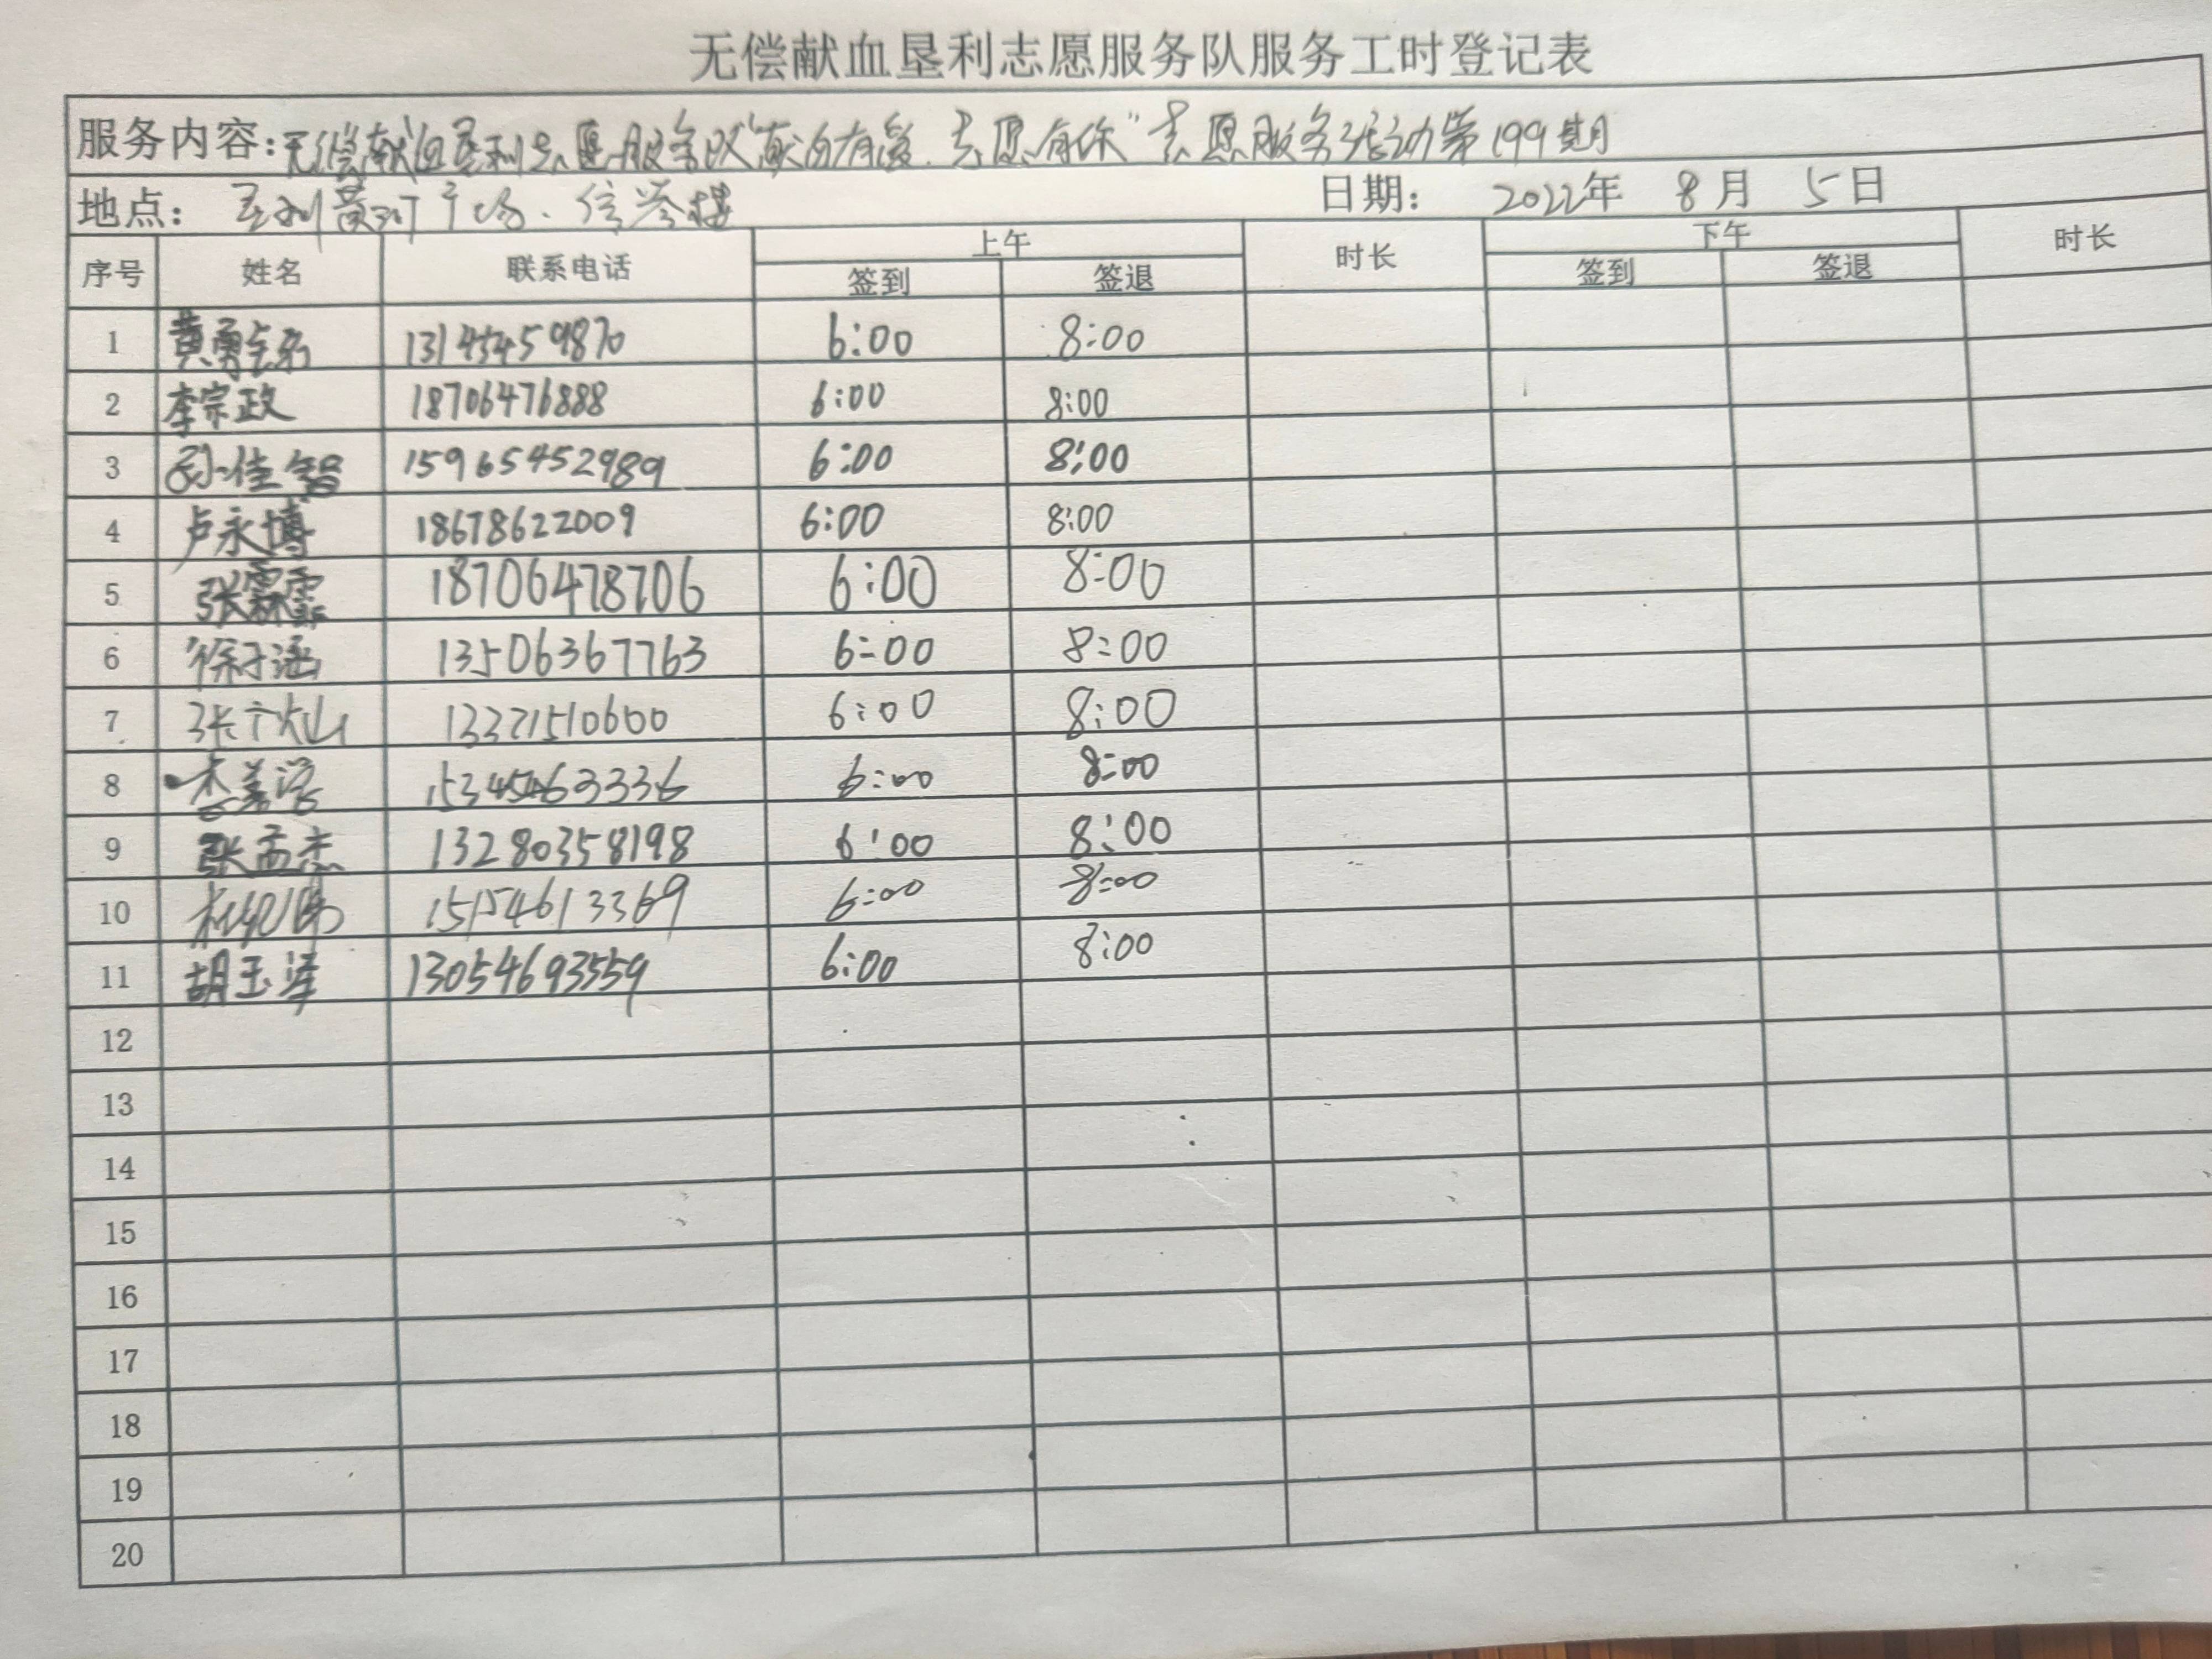 无偿献血垦利志愿服务队服务工时登记表
服务内容:无偿献血垦利志愿服务队"献血有爱.志愿有你"志愿服务活动第199期
地点: 垦利黄河广场、信誉楼 日期: 2022年 8月 5日
序号 姓名 联系电话 上午 时长 下午 时长
签到 签退 签到 签退
1 13145459870 6:00 8:00
2 李宗政 18706476888 6:00 8:00
3 孙佳智 15965452989 6:00 8:00
4 卢永博 18678622009 6:00 8:00
5 张霖霏 18706478706 6:00 8:00
6 徐子涵 13506367763 6:00 8:00
7 13371510600 6:00 8:00
8 15345463336 6:00 8:00
9 张孟杰 13280358198 6:00 8:00
10 15154613369 6:00 8:00
11 胡玉泽 13054693559 6:00 8:00
12
13
14
15
16
17
18
19
20